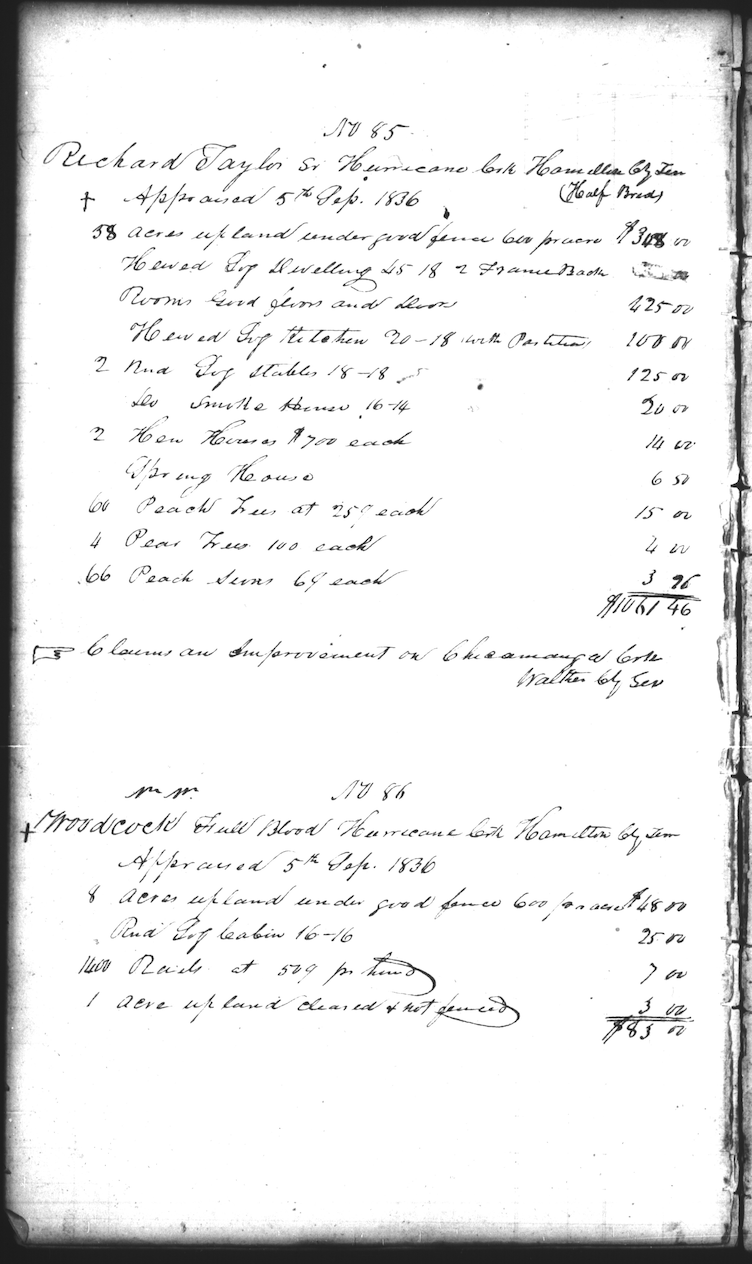 No 85
Richard Taylor Sr Hurricane Crk Hamilton Cty Ten
(Half Breed)
† Appraised 5th Sep. 1836
58 acres upland under good fence 600 pr acre $348 00
Hewed Log Dwelling 45 18 2 Frame Back
Rooms Good floors and Doors 425 00
Hewed Log Kitchen 20-18 with Partition 100 00
2 Rnd Log Stables 18-18 125 00
Do Smoke House 16-14 20 00
2 Hen Houses $7 00 each 14 00
Spring House 6 50
60 Peach Trees at 25¢ each 15 00
4 Pear Trees 100 each 4 00
66 Peach 6¢ each 3 96
$1061 46
☞ Claims an Improvement on Chicamauga Crk
Walker Cty Geo
No 86
† Woodcock Full Blood Hurricane Crk Hamilton Cty Tenn
Appraised 5th Sep. 1836
8 acres upland under good fence 600 pr acre $48 00
Rnd Log Cabin 16-16 25 00
1400 Rails at 50¢ pr hund 7 00
1 acre upland cleared & not fenced 3 00
$83 00